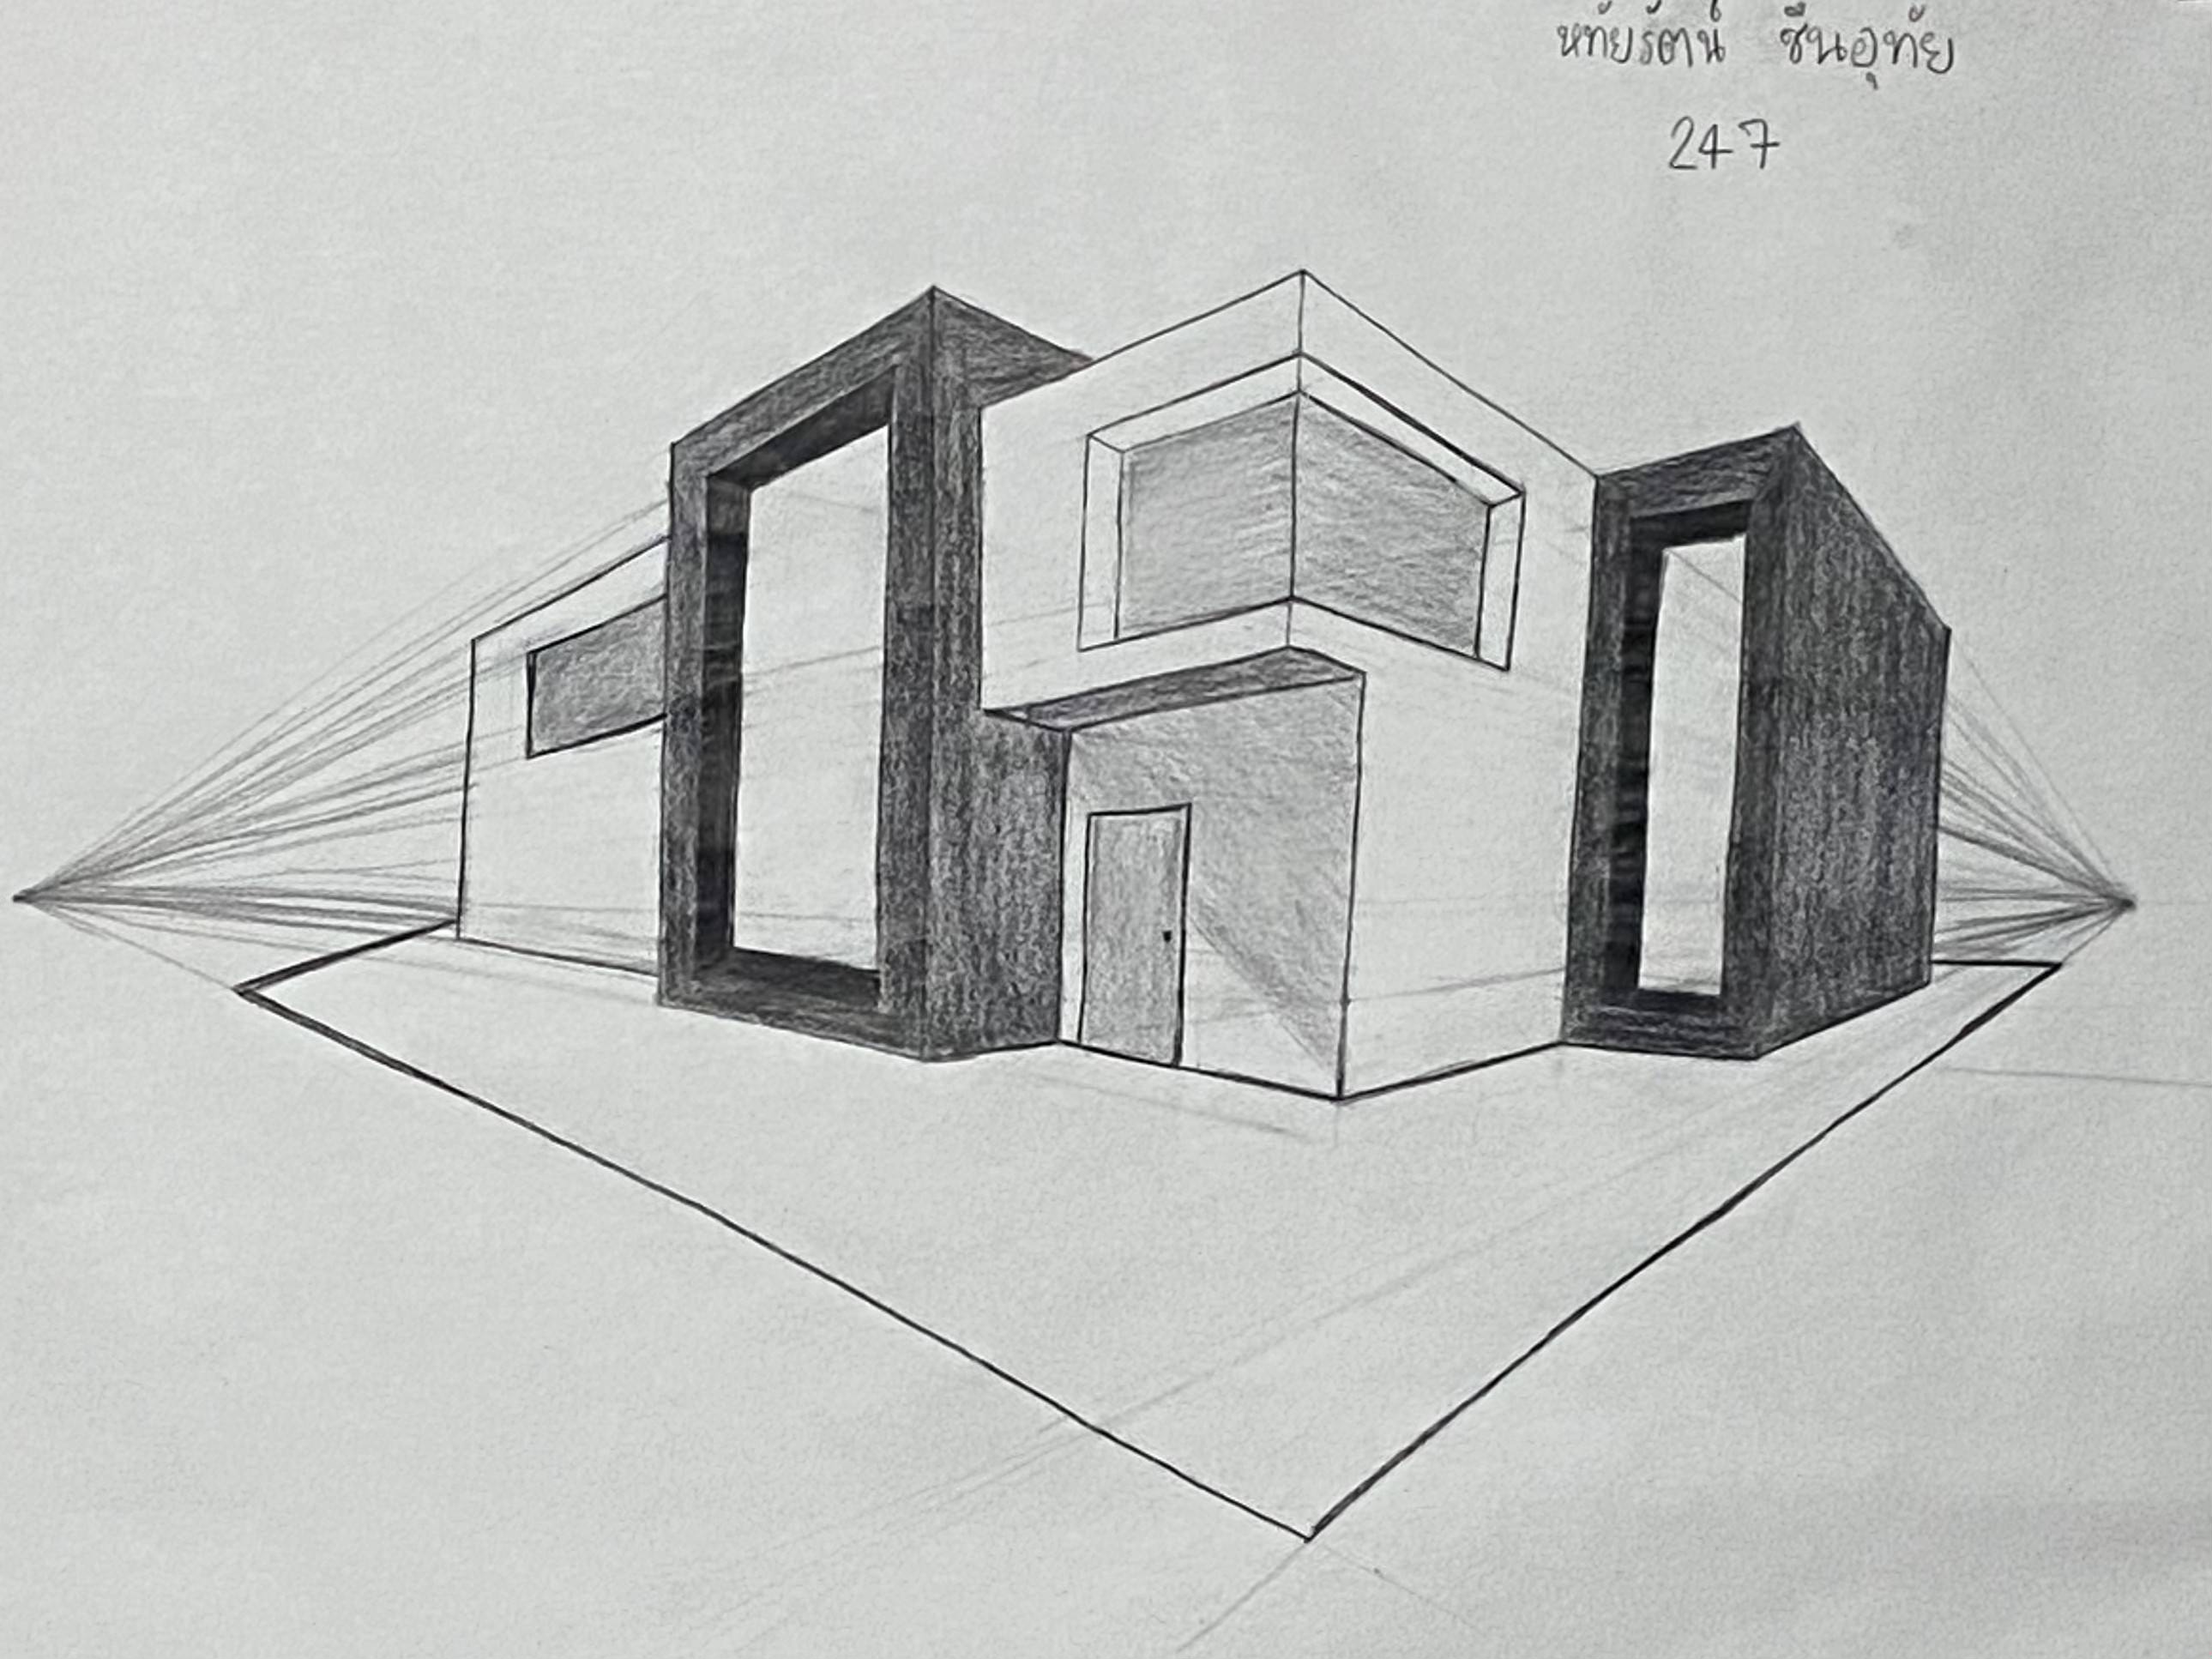 หทัยรัตน์ ชื่นอุทัย
247